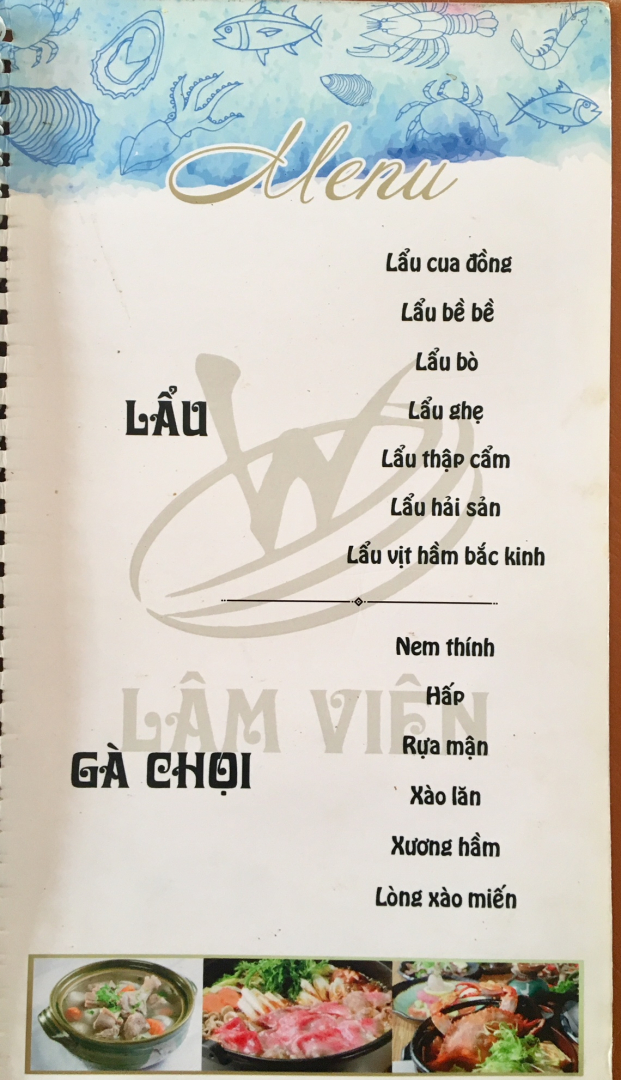 Menu
LẨU
Lẩu cua đồng
Lẩu bề bề
Lẩu bò
Lẩu ghẹ
Lẩu thập cẩm
Lẩu hải sản
Lẩu vịt hầm bắc kinh
LÂM VIÊN
GÀ CHỌI
Nem thính
Hấp
Rựa mận
Xào lăn
Xương hầm
Lòng xào miến